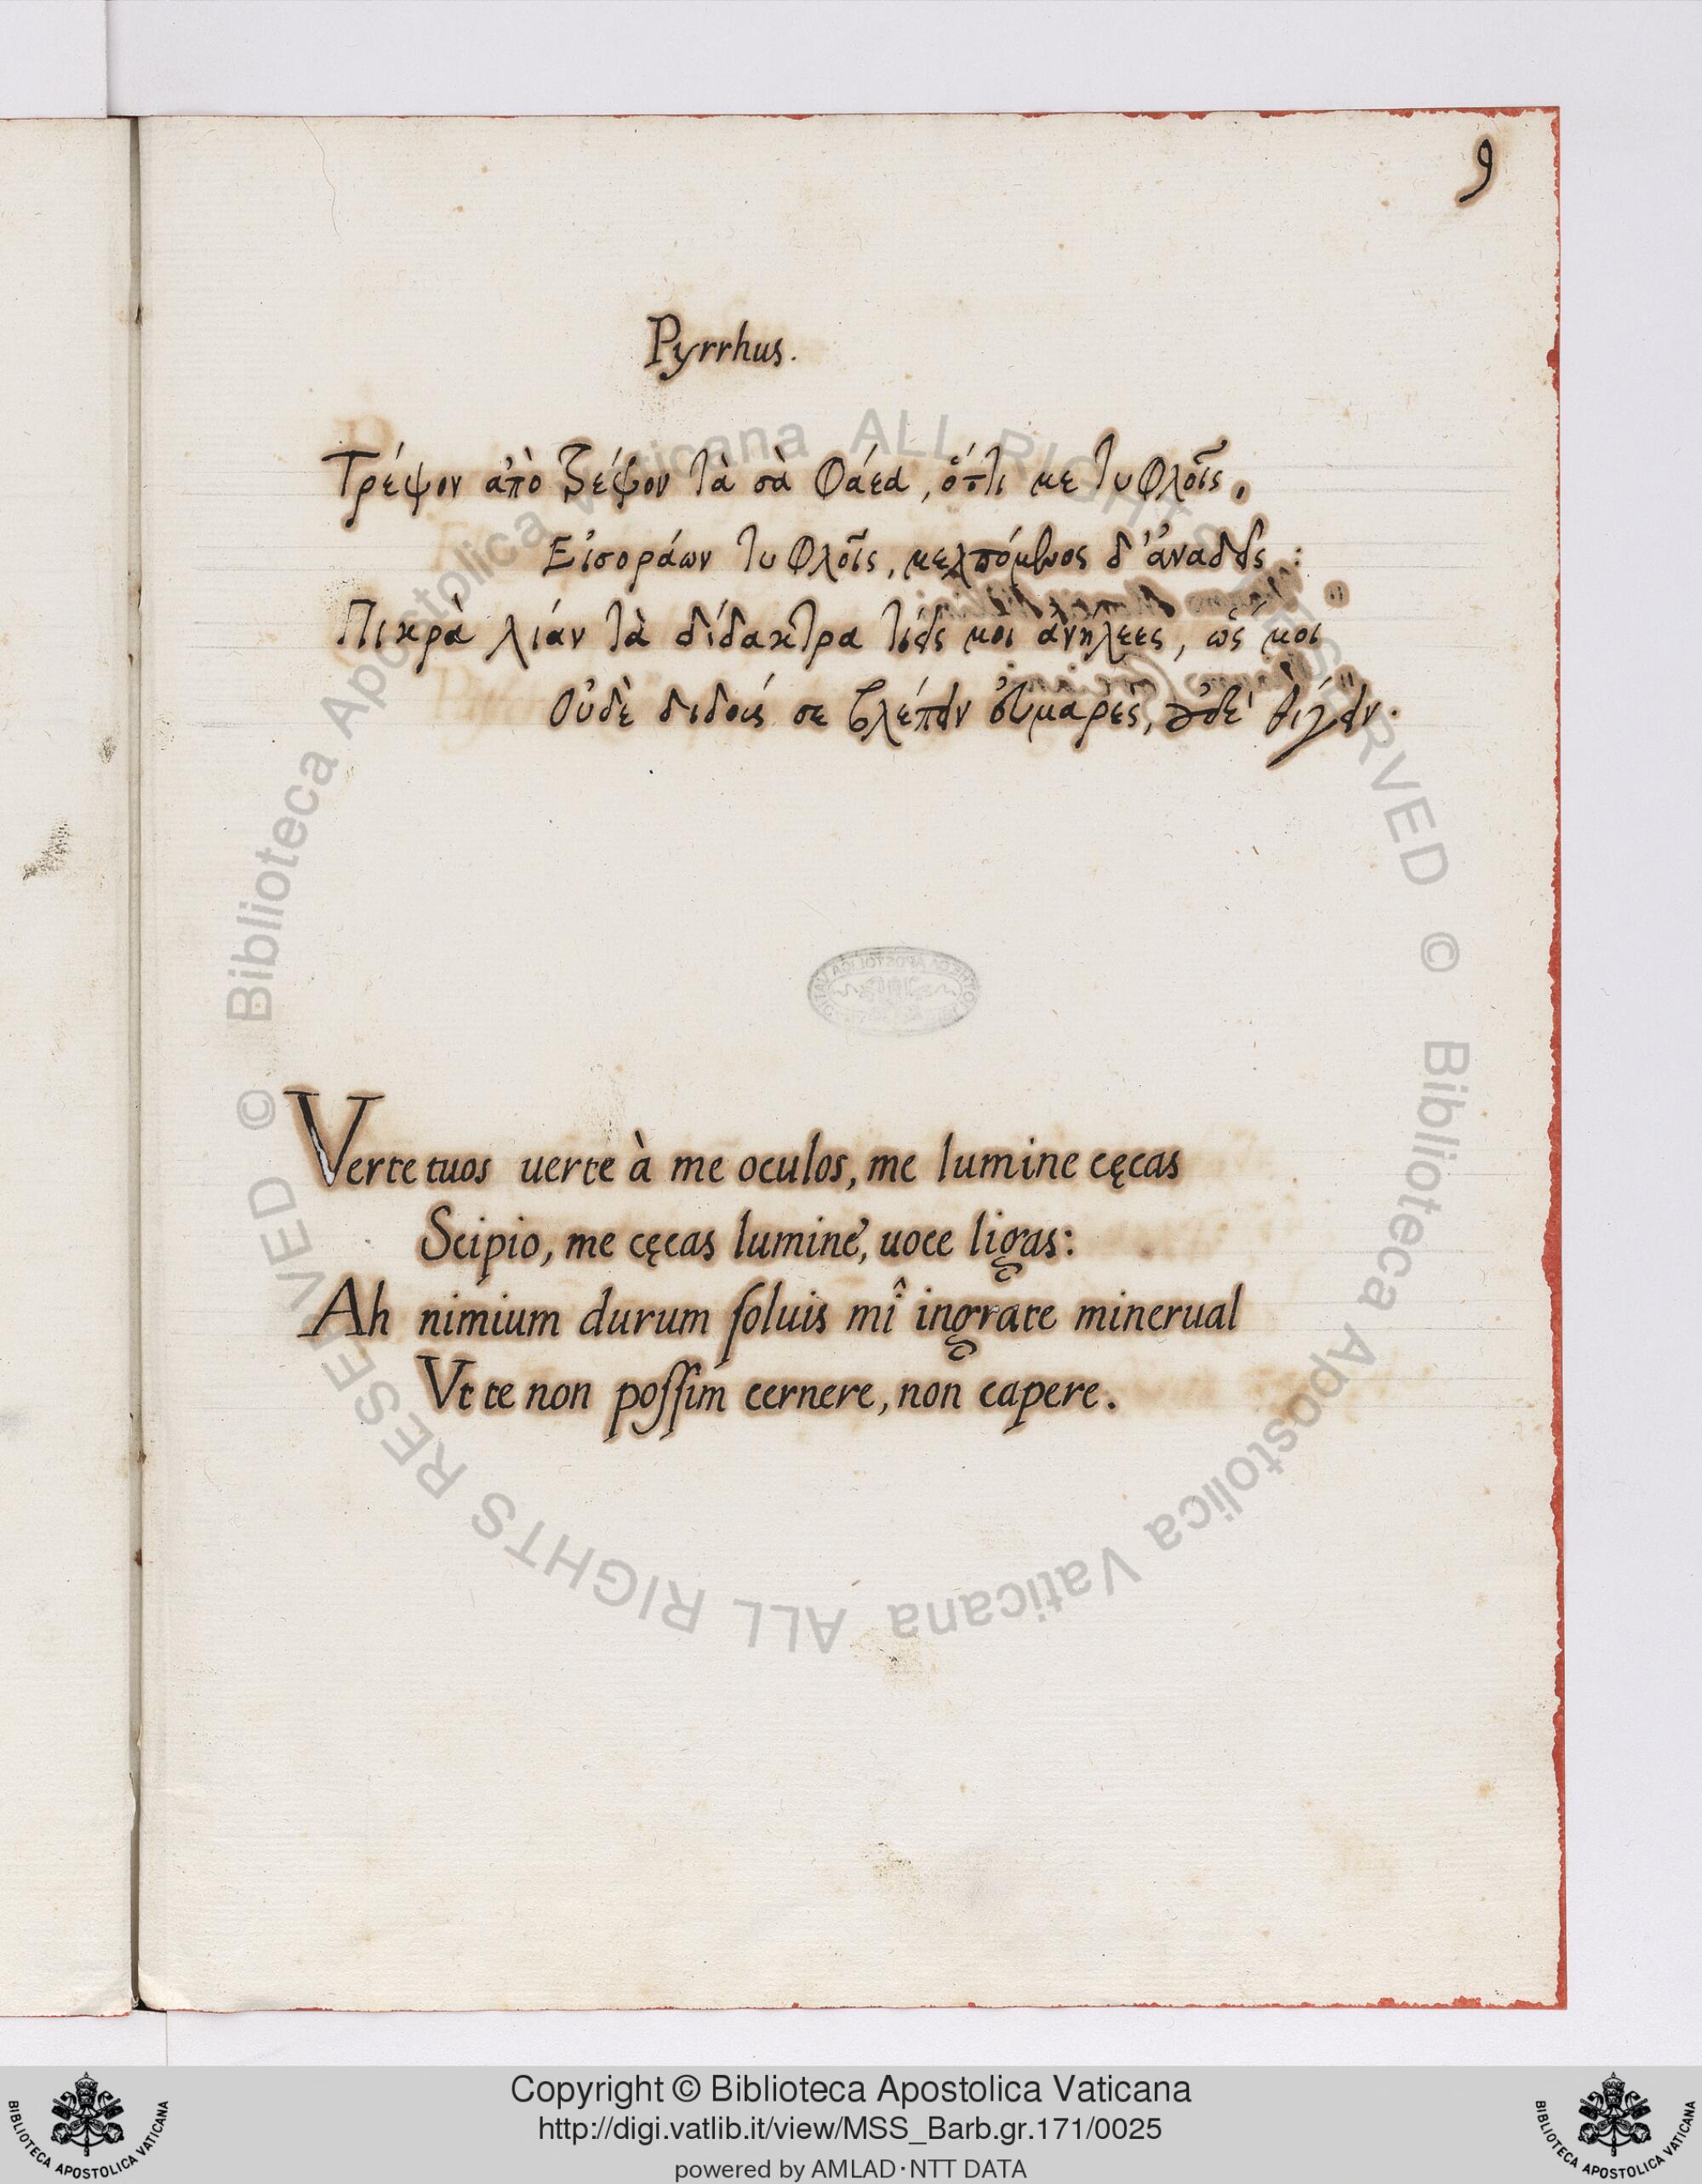 9
Pyrrhus.
Τρέψον ἀπὸ τρέψον τὰ σὰ φάεα, ὅττι με τυφλοῖς.
Εἰσοράων τυφλοῖς, μελπόμενος δ'
Πικρὰ λίαν τὰ δίδακτρα τίεις μοι ἀνηλεες, ὥς μοι
Οὐδὲ διδοίς σε βλέπειν εὐμαρὲς, οὐδὲ θίγειν.
Verte tuos uerte à me oculos, me lumine cęcas
Scipio, me cęcas lumine, uoce ligas:
Ah nimium durum soluis mî ingrate minerual
Vt te non possim cernere, non capere.
© Biblioteca Apostolica Vaticana ALL RIGHTS RESERVED
© Biblioteca Apostolica Vaticana ALL RIGHTS RESERVED
Copyright © Biblioteca Apostolica Vaticana
http://digi.vatlib.it/view/MSS_Barb.gr.171/0025
powered by AMLAD·NTT DATA
BIBLIOTECA APOSTOLICA VATICANA
BIBLIOTECA APOSTOLICA VATICANA